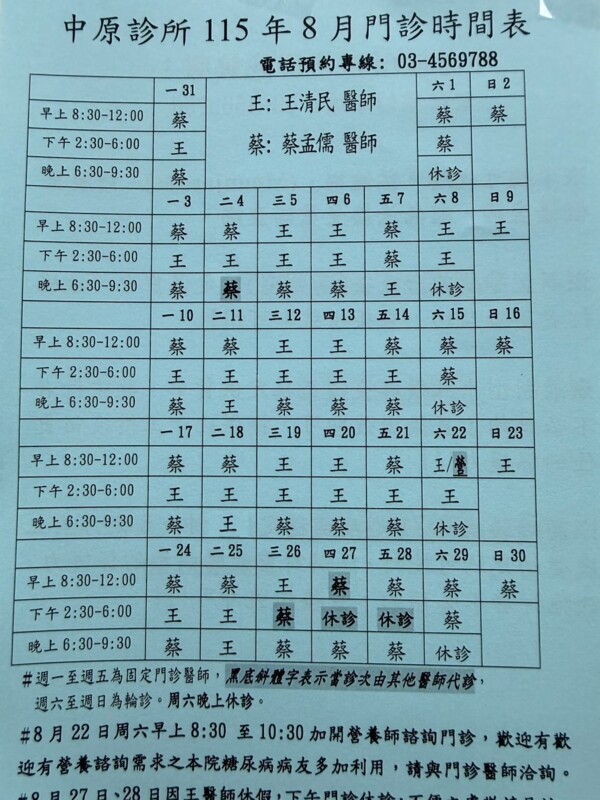 中原診所 115 年 8 月門診時間表
電話預約專線: 03-4569788
一 31 王: 王清民 醫師 六 1 日 2
早上 8:30-12:00 蔡 蔡: 蔡孟儒 醫師 蔡 蔡
下午 2:30-6:00 王 蔡
晚上 6:30-9:30 蔡 休診
一 3 二 4 三 5 四 6 五 7 六 8 日 9
早上 8:30-12:00 蔡 蔡 王 王 蔡 王 王
下午 2:30-6:00 王 王 王 王 蔡 王
晚上 6:30-9:30 蔡 蔡 蔡 蔡 王 休診
一 10 二 11 三 12 四 13 五 14 六 15 日 16
早上 8:30-12:00 蔡 蔡 王 王 蔡 蔡 蔡
下午 2:30-6:00 王 王 王 王 王 蔡
晚上 6:30-9:30 蔡 王 蔡 蔡 蔡 休診
一 17 二 18 三 19 四 20 五 21 六 22 日 23
早上 8:30-12:00 蔡 蔡 王 王 蔡 王/營 王
下午 2:30-6:00 王 王 王 王 王 王
晚上 6:30-9:30 蔡 王 蔡 蔡 蔡 休診
一 24 二 25 三 26 四 27 五 28 六 29 日 30
早上 8:30-12:00 蔡 蔡 王 蔡 蔡 蔡 蔡
下午 2:30-6:00 王 王 蔡 休診 休診 蔡
晚上 6:30-9:30 蔡 王 蔡 蔡 蔡 休診
#週一至週五為固定門診醫師，黑底斜體字表示當診次由其他醫師代診，
週六至週日為輪診。周六晚上休診。
#8 月 22 日周六早上 8:30 至 10:30 加開營養師諮詢門診，歡迎有歡
迎有營養諮詢需求之本院糖尿病病友多加利用，請與門診醫師洽詢。
#8 月 27 日、28 日因王醫師休假，下午門診休診